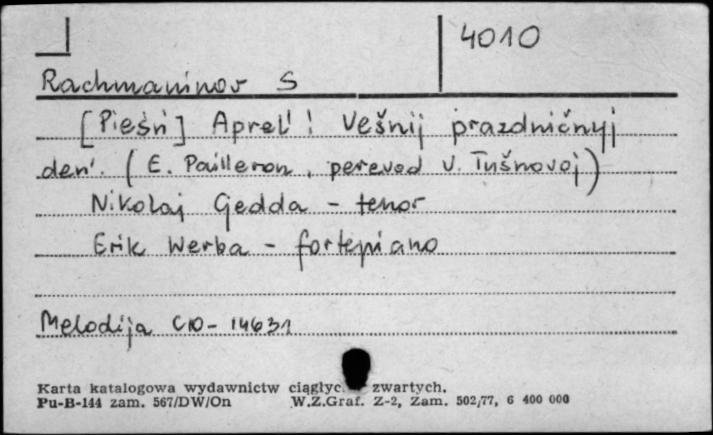 4010
Rachmaninov S
[Pieśń] Aprel'! Vešnij prazdničnyj
den'. (E. Pailleron, perevod V. Tušnovoj)
Nikolaj Gedda - tenor
Erik Werba - fortepiano
Melodija C10-14631
Karta katalogowa wydawnictw ciągłyc zwartych.
Pu-B-144 zam. 567/DW/On W.Z.Graf. Z-2, Zam. 502/77, 6 400 000